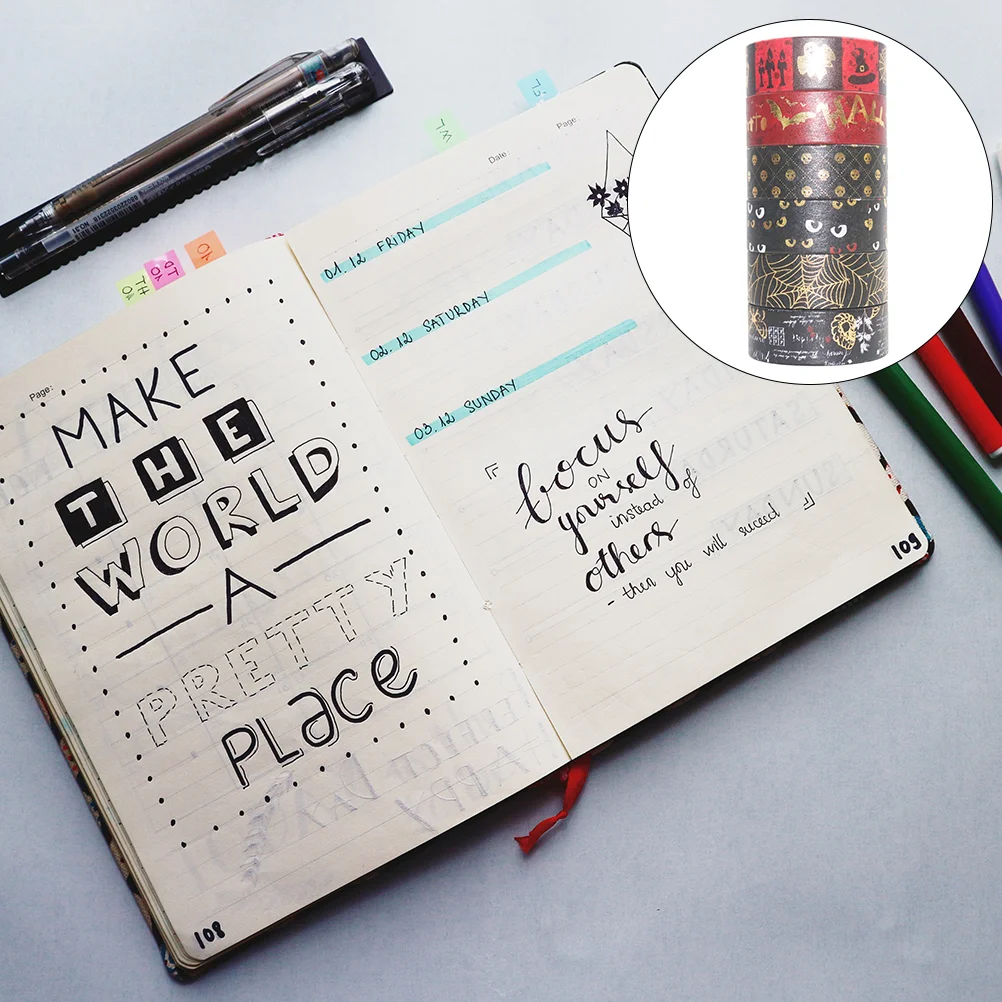 Page:
MAKE
THE
WORLD
A
PRETTY
PLace
108
Date:
Page:
01.12 FRIDAY
02.12 SATURDAY
03.12 SUNDAY
focus
ON
yourself
instead of
others
- then you will succeed
109
TH